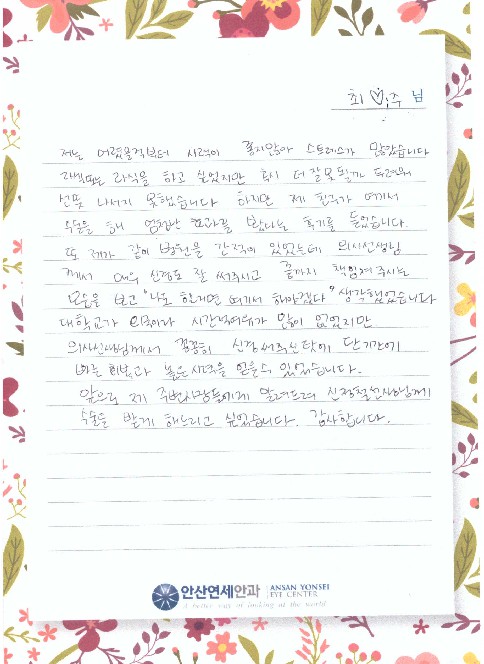 최♡주 님
저는 어렸을적부터 시력이 좋지않아 스트레스가 많았습니다
라식을 하고 싶었지만 혹시 더 잘못될까 두려워
선뜻 나서지 못했습니다 하지만 제 친구가 여기서
수술을 해 엄청난 효과를 봤다는 후기를 들었습니다.
또 제가 같이 병원을 간적이 있었는데 의사선생님
께서 매우 신경도 잘 써주시고 끝까지 책임져주시는
모습을 보고 "나도 할거면 여기서 해야겠다" 생각했었습니다
대학교가 시간적여유가 많이 없었지만
의사선생님께서 꼼꼼히 신경써주신 덕에 단기간에
빠른 회복과 좋은 시력을 얻을수 있었습니다.
앞으로 제 주변사람들에게 알려드려 선생님께
수술을 받게 해드리고 싶었습니다. 감사합니다.
안산연세안과 ANSAN YONSEI
EYE CENTER
A better way of looking at the world